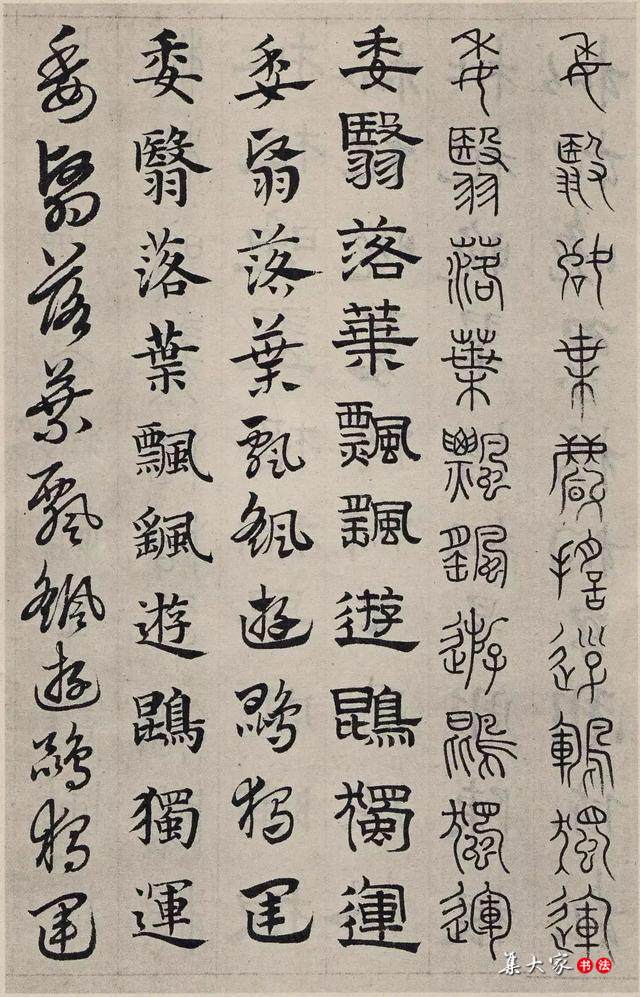 委翳落葉飄颻遊鵾獨運
委翳落葉飄颻遊鵾獨運
委翳落葉飄颻遊鵾獨運
委翳落葉飄颻遊鵾獨運
委翳落葉飄颻遊鵾獨運
委翳落葉飄颻遊鵾獨運
集大家书法